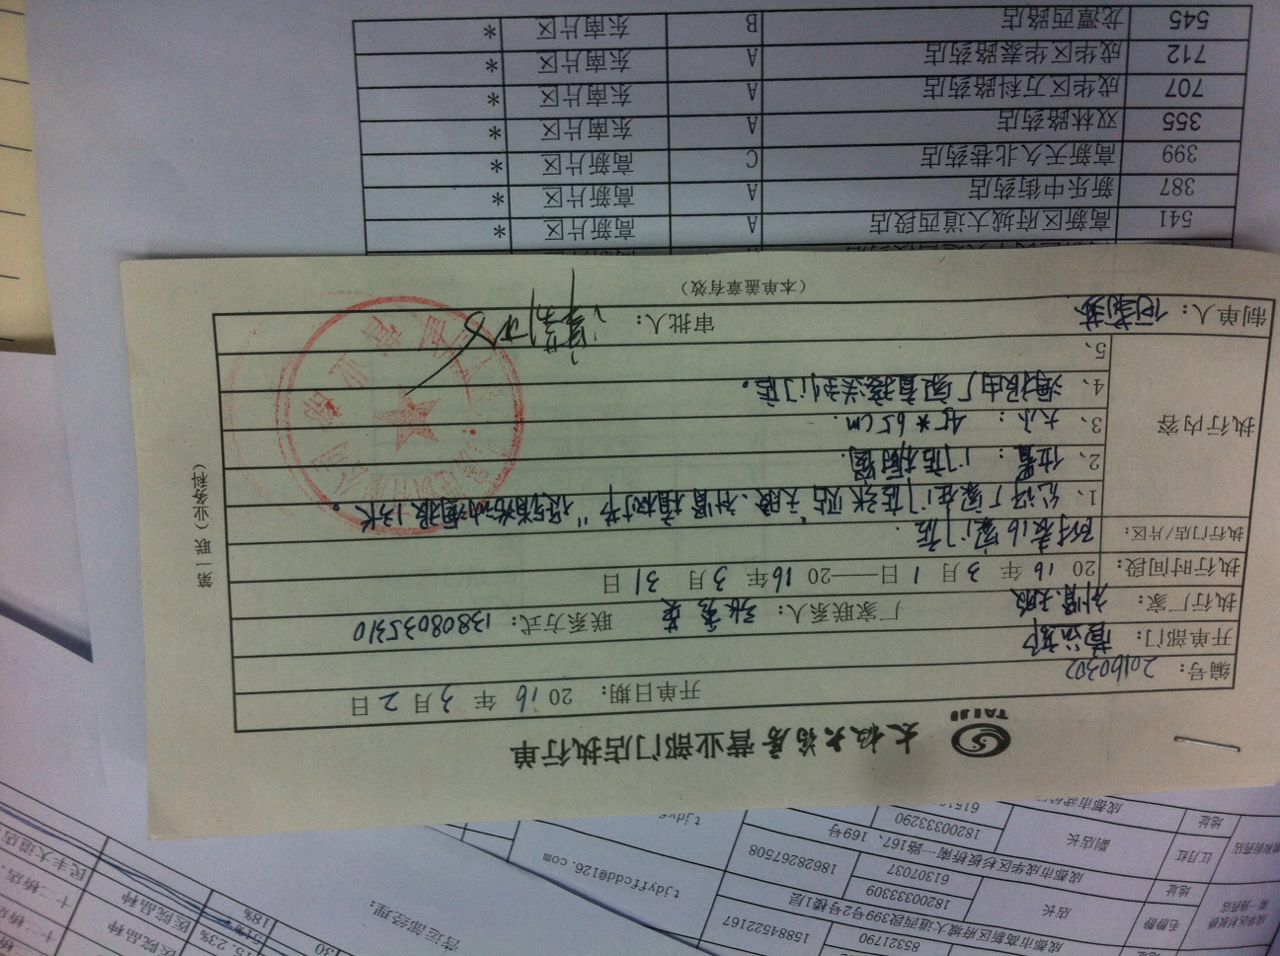 太极大药房营业部门店执行单
TAIJI
开单日期： 2016年3月2日
编号： 20160302
开单部门： 营运部
执行厂家： 厂家联系人： 联系方式： 13808035310
执行时间段： 2016年3月1日——2016年3月31日
执行门店/片区： 附表16家门店
执行内容
1、 允许厂家在门店张贴 活动海报1张。
2、 位置：门店橱窗.
3、 大小： 45*65cm.
4、 海报由厂家直接送到门店。
5、
制单人： 审批人：
（本单盖章有效）
第一联（业务科）
541 高新区府城大道西段店 A 高新片区 *
387 新乐中街药店 A 高新片区 *
399 高新天久北巷药店 C 高新片区 *
355 双林路药店 A 东南片区 *
707 成华区万科路药店 A 东南片区 *
712 成华区华泰路药店 A 东南片区 *
545 龙潭西路店 B 东南片区 *
85321790 15884522167
成都市高新区府城大道西段399号2号楼1层
毛静静 店长 18200333309
地址 61307037 18628267508
成都市成华区杉板桥南一路167、169号
江月红 副店长 18200333290
地址
tjdyffcdd@126.com
营运部经理：
130
18%
51%
15.23%
医院品种
医院品种
民丰大道店
十二桥店